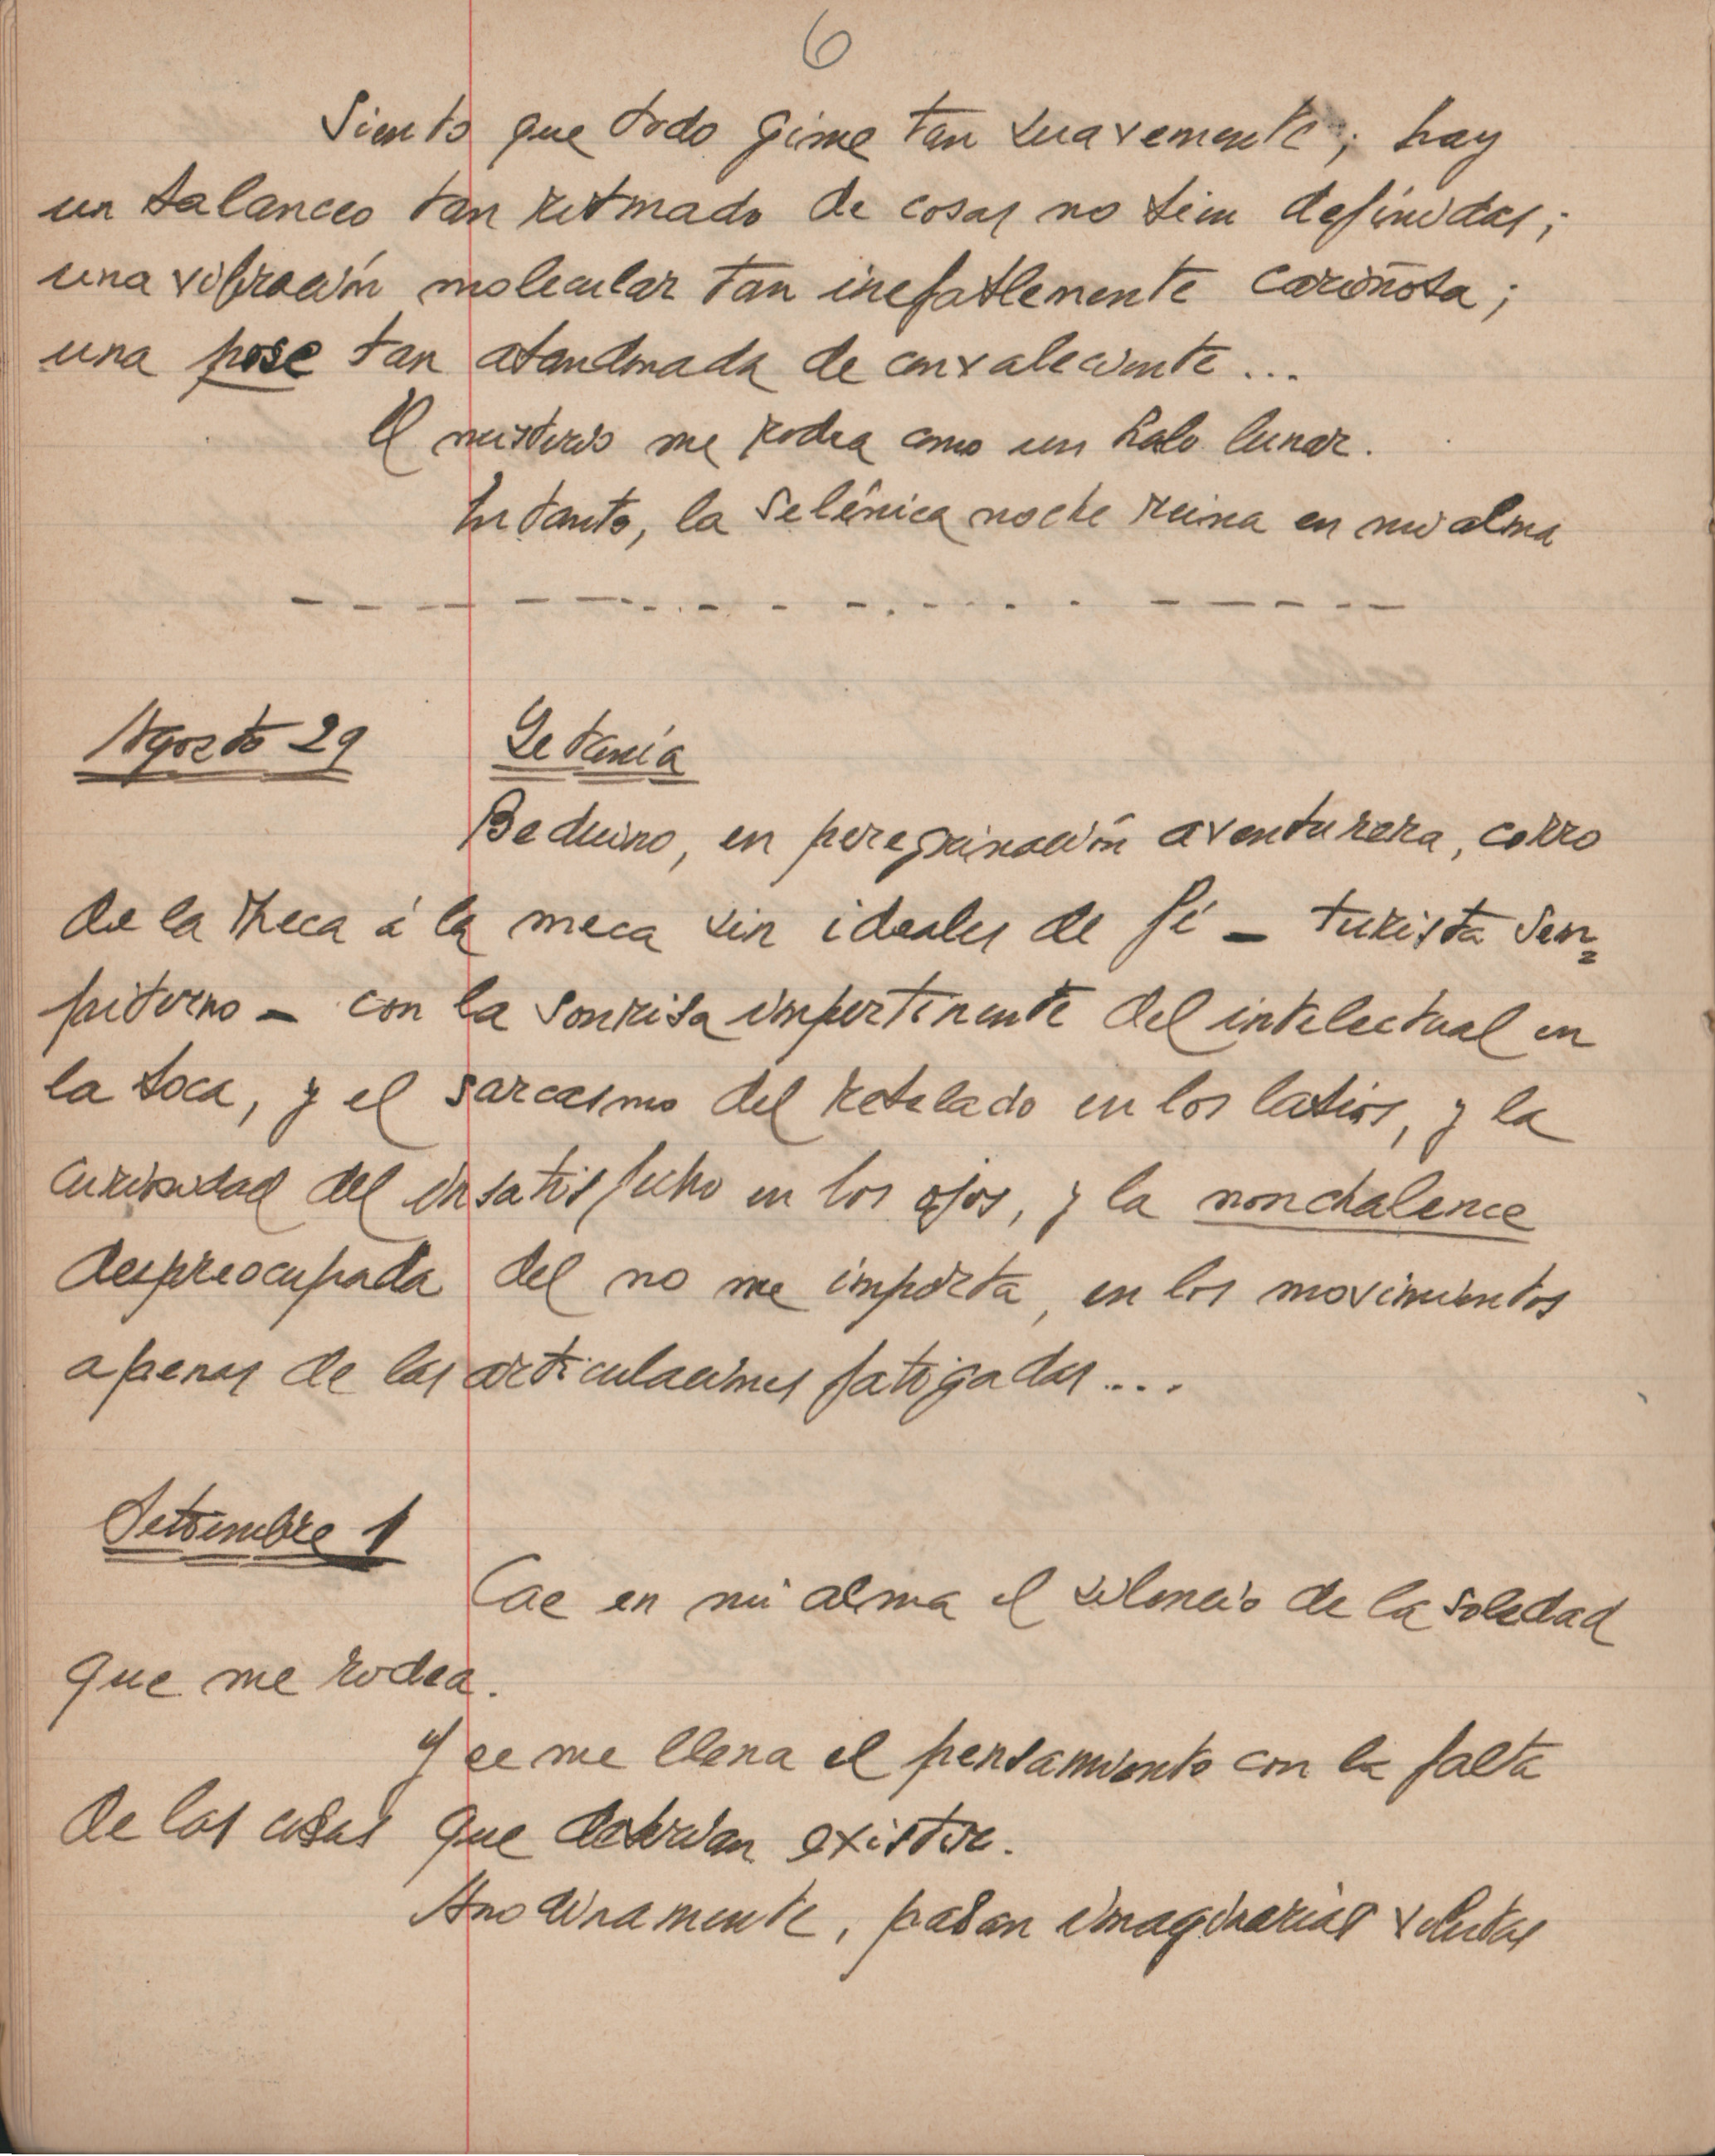 6
Siento que todo gime tan suavemente; hay
un balanceo tan ritmado de cosas no bien definidas;
una vibración molecular tan inefablemente cariñosa;
una pose tan abandonada de convaleciente...
El misterio me rodea como un halo lunar.
En tanto, la selénica noche reina en mi alma
Agosto 29 Letanía
Beduino, en peregrinación aventurera, corro
de la Meca á la meca sin ideales de fé - turista sem=
piterno - con la sonrisa impertinente del intelectual en
la boca, y el sarcasmo del rebelado en los labios, y la
curiosidad del insatisfecho en los ojos, y la nonchalence
despreocupada del no me importa, en los movimientos
apenas de las articulaciones fatigadas...
Setiembre 1
Cae en mi alma el silencio de la soledad
que me rodea.
Y se me llena el pensamiento con la falta
de las cosas que debieran existir.
Anodinamente, pasan imaginarias volutas